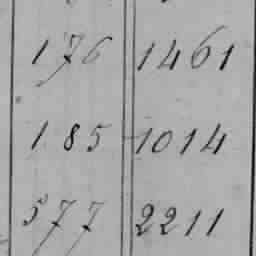 176 1461
185 1014
577 2211